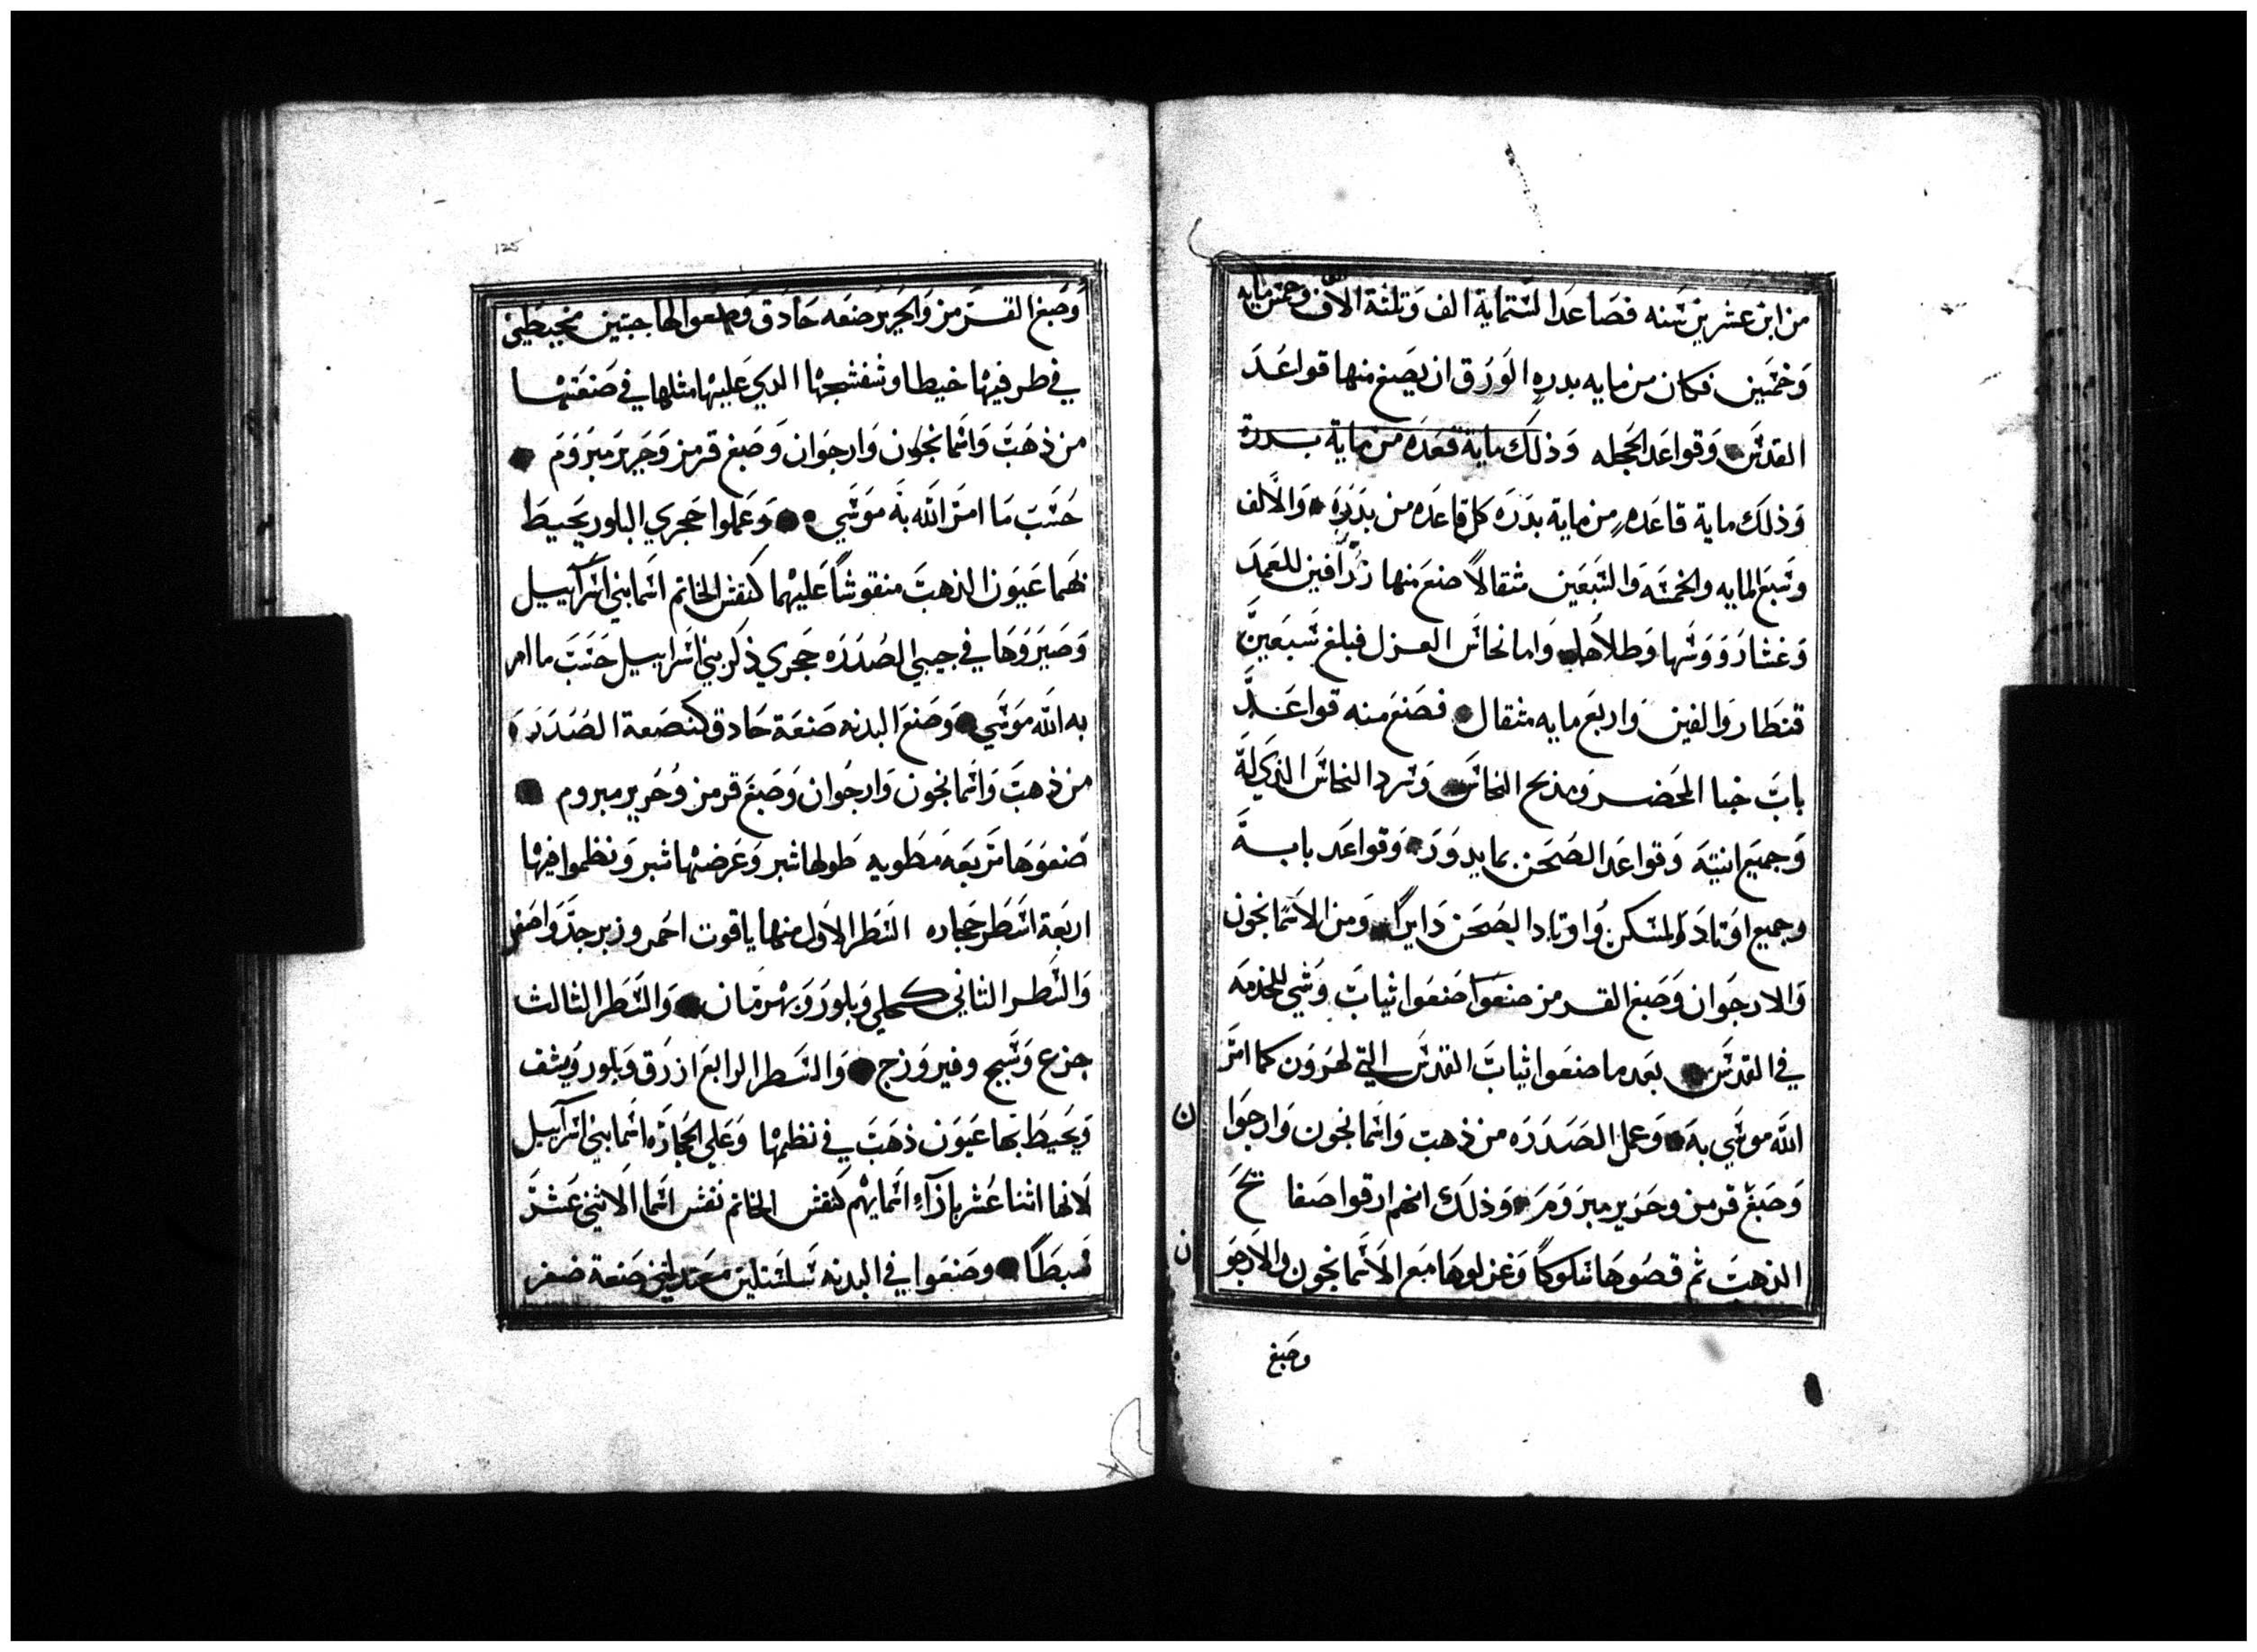 من ابن عشرين سنه فصاعدا لستماية الف وتلثة الاف وخمس مايه
وخمسين فكان من مايه بدره الورق ان يصيغ منها قواعد
القدس وقواعد الحجله وذلك ماية قعده من ماية بدرة
وذلك ماية قاعده من ماية بدره كل قاعده من بدره والالف
وسبع المايه والخمسه والسبعين مثقالا صنع منها زرافين للعمد
وغشا رووسها وطلاها واما نحاس العزل فبلغ سبعين
قنطار والفين واربع مايه مثقال فصنع منه قواعد
باب خبا المحضر ومذبح النحاس وسرد النحاس الذي له
وجميع انيته وقواعد الصحن بما يدور وقواعد بابه
وجميع اوتاد المسكن واوتاد الصحن دايرا ومن الاسمانجون
والارجوان وصبغ القرمز صنعوا صنعوا ثياب وشي للخدمه
في القدس بعدما صنعوا ثياب القدس التي لهرون كما امر
الله موسي به وعمل الصدره من ذهب واسمانجون وارجوا
ن
وصبغ قرمز وحرير مبروم وذلك انهم ارقوا صفايح
الذهب ثم قصوها سلوكا وغزلوها مع الاسمانجون والارجو
ن
وصبغ
125
وصبغ القرمز والحرير صنعه حادق وصنعوا لها جبتين محيطتين
في طرفيها خيطا وشفشجها الذي عليها مثلها في صنعتها
من ذهب واسمانجون وارجوان وصبغ قرمز وحرير مبروم
حسب ما امر الله به موسي وعملوا حجري البلور يحيط
بهما عيون الذهب منقوشا عليهما كنقش الخاتم اسما بني اسرآييل
وصيروها في جيبي الصدره حجري ذكر بني اسراييل حسب ما امر
به الله موسي وصنع البدنه صنعة حادق كصنعة الصدره
من ذهب واسمانجون وارجوان وصبغ قرمز وحرير مبروم
صنعوها مربعه مطويه طولها شبر وعرضها شبر ونظموا فيها
اربعة اسطر حجاره السطر الاول منها ياقوت احمر وزبرجد واصفر
والسطر الثاني كحلي وبلور وبهرمان والسطر الثالث
جزع وسبج وفيروزج والسطر الرابع ازرق وبلور ويشف
ويحيط بها عيون ذهب في نظمها وعلي الحجاره اسما بني اسرآييل
لانها اثنا عشر بازآء اسمايهم كنقش الخاتم نقش اسما الاثني عشر
سبطا وصنعوا في البدنه سلسلتين معتدلتين صنعة ضفر